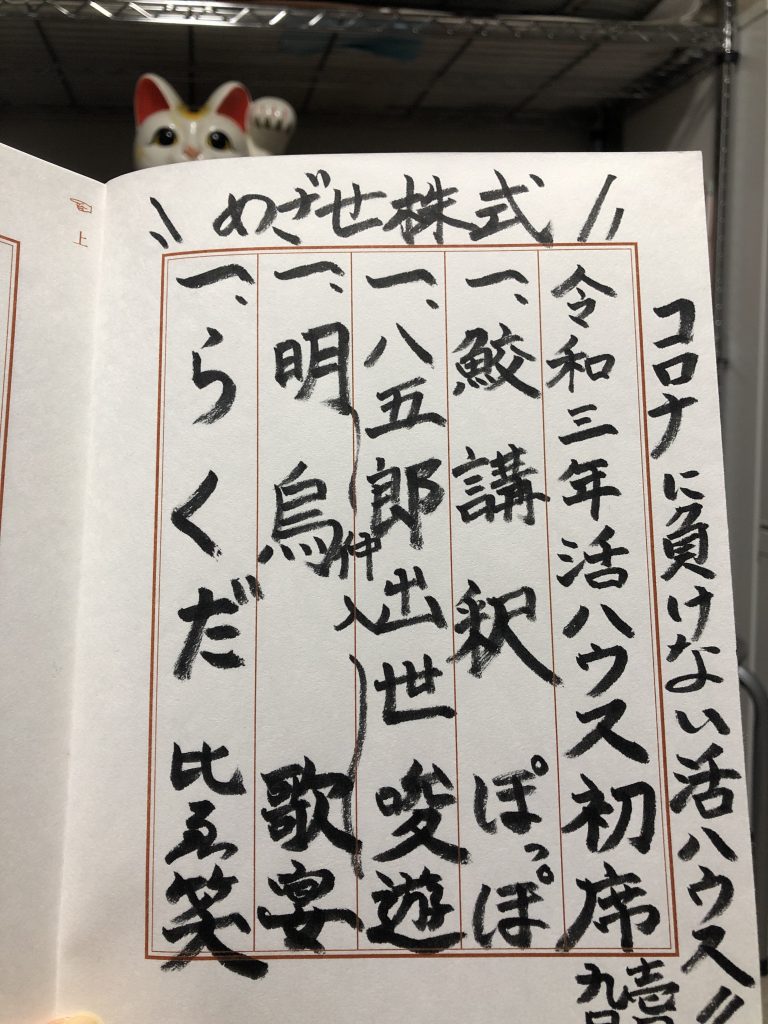 めざせ株式
コロナに負けない活ハウス
令和三年活ハウス初席
壱
九日
一、鮫講釈 ぽっぽ
一、八五郎出世 唆遊
仲入
一、明烏 歌宴
一、らくだ 比ゑ笑
☜
上